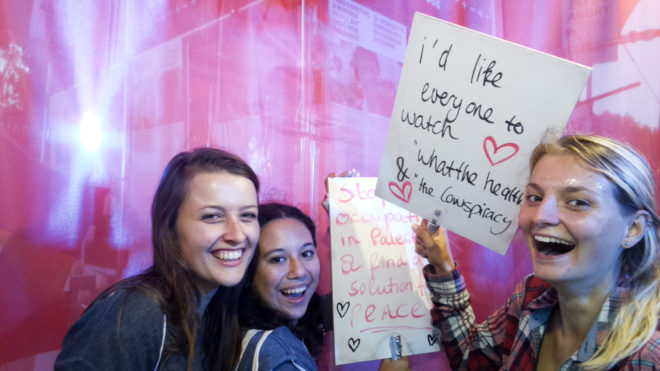 i'd like
everyone to
watch
"what the health
& "the Conspiracy
Stop
in
& find a
solution
PEACE